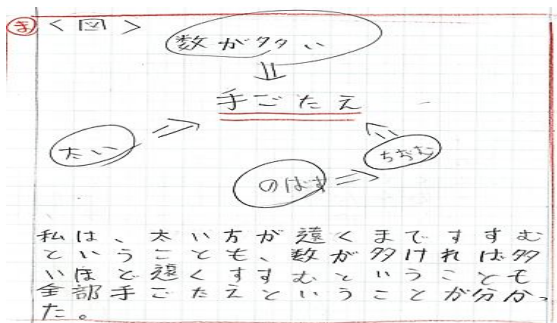 ま <図>
数が多い
手ごたえ
太い
ちぢむ
のばす
私は、太い方が遠くまですすむ
ということも、数が多ければ多
いほど遠くすすむということも
全部手ごたえということが分かっ
た。